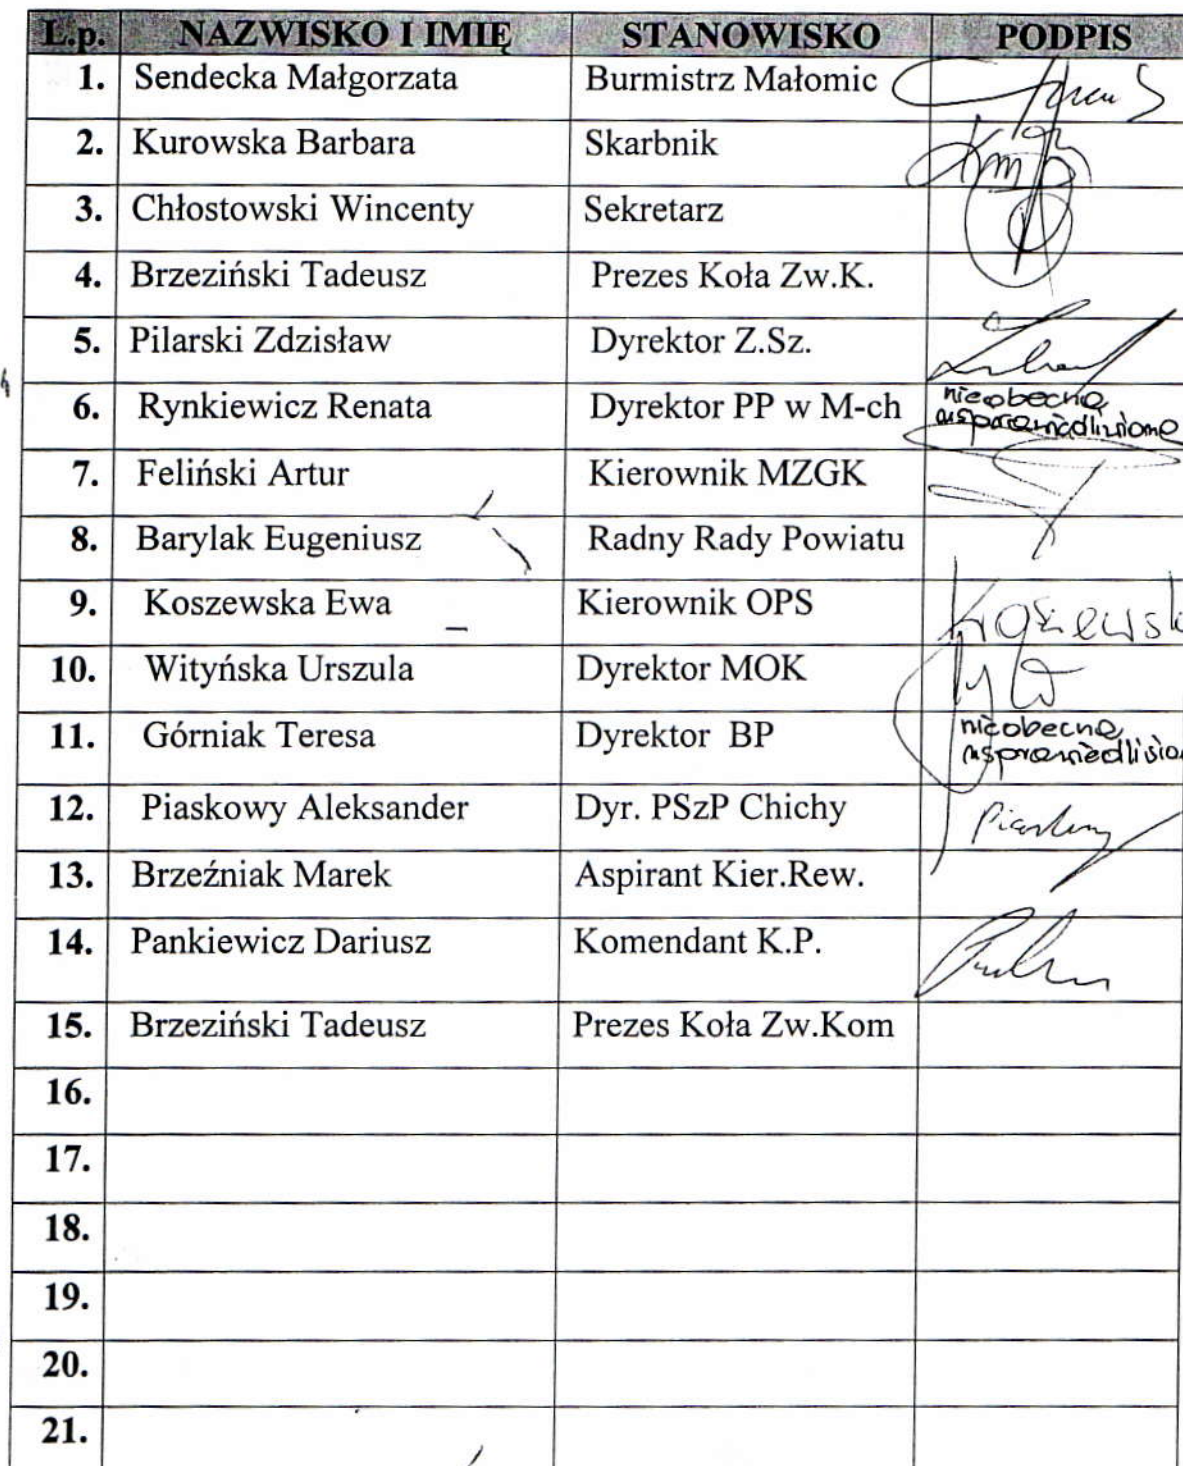 L.p. NAZWISKO I IMIĘ STANOWISKO PODPIS
1. Sendecka Małgorzata Burmistrz Małomic
2. Kurowska Barbara Skarbnik
3. Chłostowski Wincenty Sekretarz
4. Brzeziński Tadeusz Prezes Koła Zw.K.
5. Pilarski Zdzisław Dyrektor Z.Sz.
6. Rynkiewicz Renata Dyrektor PP w M-ch nieobecna
usprawiedliwiona
7. Feliński Artur Kierownik MZGK
8. Barylak Eugeniusz Radny Rady Powiatu
9. Koszewska Ewa Kierownik OPS Koszewsk
10. Wityńska Urszula Dyrektor MOK
11. Górniak Teresa Dyrektor BP nieobecna
usprawiedliwion
12. Piaskowy Aleksander Dyr. PSzP Chichy
13. Brzeźniak Marek Aspirant Kier.Rew.
14. Pankiewicz Dariusz Komendant K.P.
15. Brzeziński Tadeusz Prezes Koła Zw.Kom
16.
17.
18.
19.
20.
21.